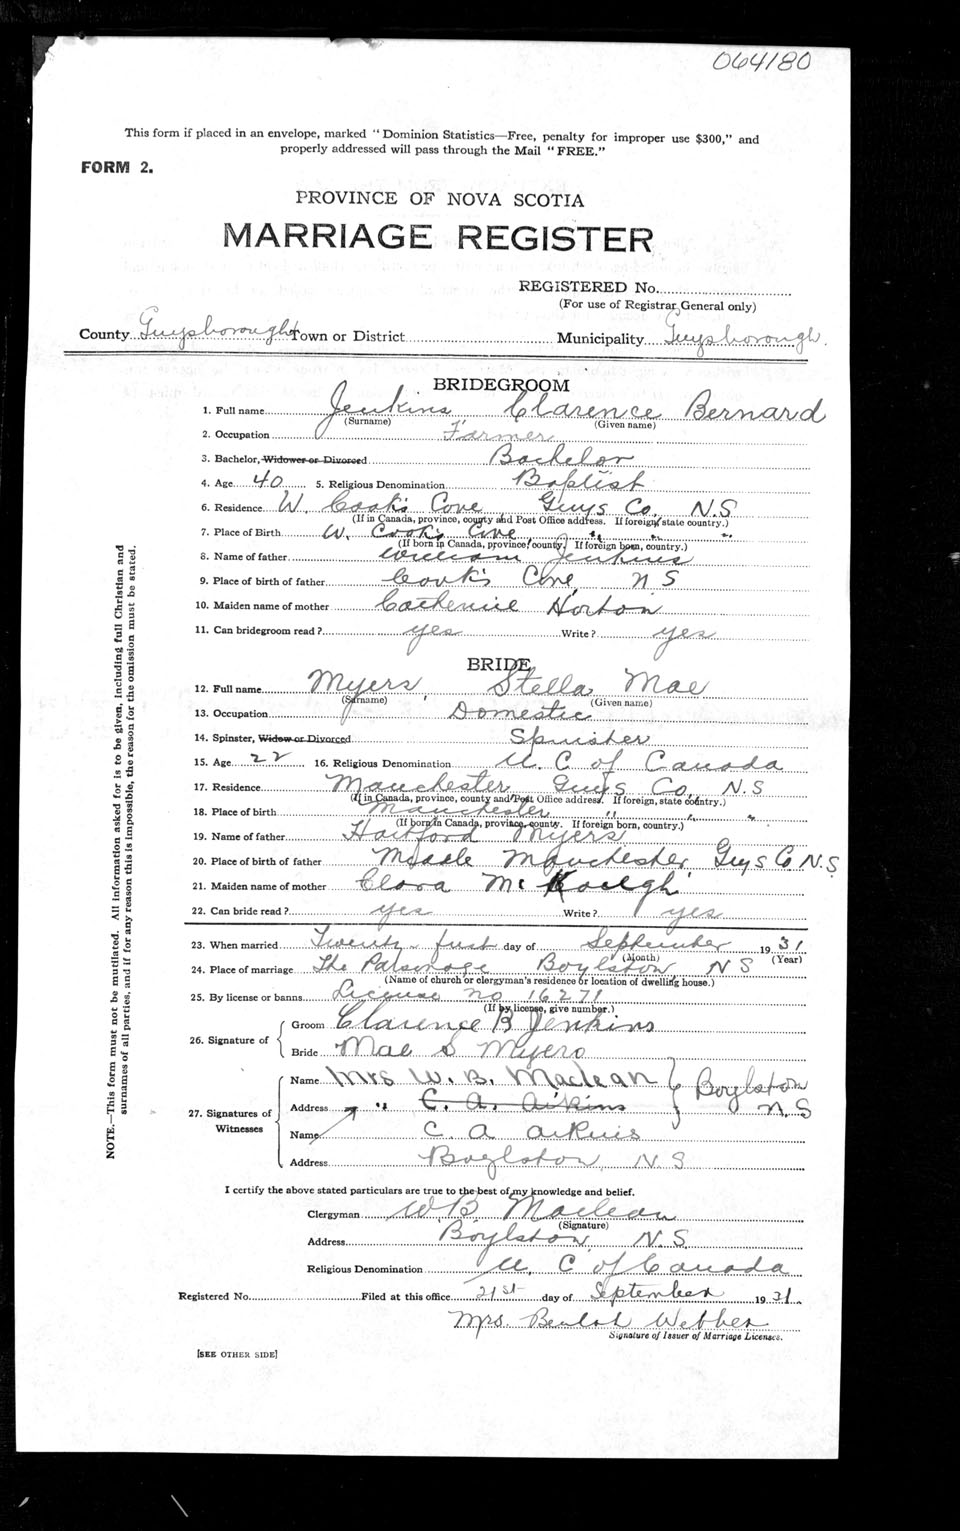 064180
This form if placed in an envelope, marked "Dominion Statistics—Free, penalty for improper use $300," and
properly addressed will pass through the Mail "FREE."
FORM 2.
PROVINCE OF NOVA SCOTIA
MARRIAGE REGISTER
REGISTERED No.
(For use of Registrar General only)
County Guysborough Town or District Municipality Guysborough
BRIDEGROOM
1. Full name Jenkins Clarence Bernard
(Surname) (Given name)
2. Occupation Farmer
3. Bachelor, Widower or Divorced Bachelor
4. Age 40 5. Religious Denomination Baptist
6. Residence W. Cook's Cove Guys Co. N.S
(If in Canada, province, county and Post Office address. If foreign, state country.)
7. Place of Birth W. Cook's Cove " " "
(If born in Canada, province, county. If foreign born, country.)
8. Name of father William Jenkins
9. Place of birth of father Cook's Cove, N S
10. Maiden name of mother Catherine Horton
11. Can bridegroom read? yes Write? yes
BRIDE
12. Full name Myers, Stella Mae
(Surname) (Given name)
13. Occupation Domestic
14. Spinster, Widow or Divorced Spinster
15. Age 22 16. Religious Denomination U. C of Canada
17. Residence Manchester Guys Co, N.S
(If in Canada, province, county and Post Office address. If foreign, state country.)
18. Place of birth Manchester " " "
(If born in Canada, province, county. If foreign born, country.)
19. Name of father Hartford Myers
20. Place of birth of father Manchester Guys Co N.S
21. Maiden name of mother Clara Mc
22. Can bride read? yes Write? yes
23. When married Twenty first day of September 1931
(Month) (Year)
24. Place of marriage The Parsonage Boylston, N S
(Name of church or clergyman's residence or location of dwelling house.)
25. By license or banns License no 16271
(If by license, give number.)
26. Signature of
Groom Clarence B Jenkins
Bride Mae S Myers
27. Signatures of Witnesses
Name Mrs W. B. Maclean Boylston
Address " C. A. Aikins N.S
Name C. A Aikins
Address Boylston, N.S
I certify the above stated particulars are true to the best of my knowledge and belief.
Clergyman W B Maclean
(Signature)
Address Boylston, N.S.
Religious Denomination U. C of Canada
Registered No. Filed at this office 21st day of September 1931
Mrs. Beulah Webber
Signature of Issuer of Marriage Licenses.
[SEE OTHER SIDE]
NOTE.—This form must not be mutilated. All information asked for is to be given, including full Christian and
surnames of all parties, and if for any reason this is impossible, the reason for the omission must be stated.